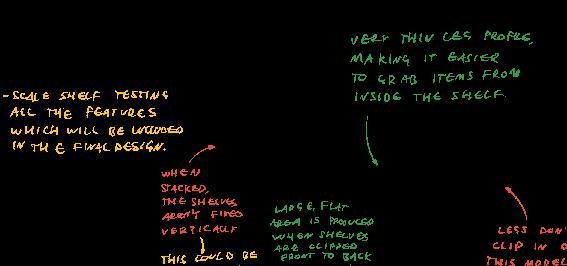 VERY THIN LEG PROFILE,
MAKING IT EASIER
TO GRAB ITEMS FROM
INSIDE THE SHELF.
-SCALE SHELF TESTING
ALL THE FEATURES
WHICH WILL BE INCLUDED
IN THE FINAL DESIGN.
WHEN
STACKED,
THE SHELVES
AREN'T FIXED
VERTICALLY
THIS COULD BE
LARGE, FLAT
AREA IS PRODUCED
WHEN SHELVES
ARE CLIPPED
FRONT TO BACK
LEGS DON'
CLIP IN
THIS MODEL